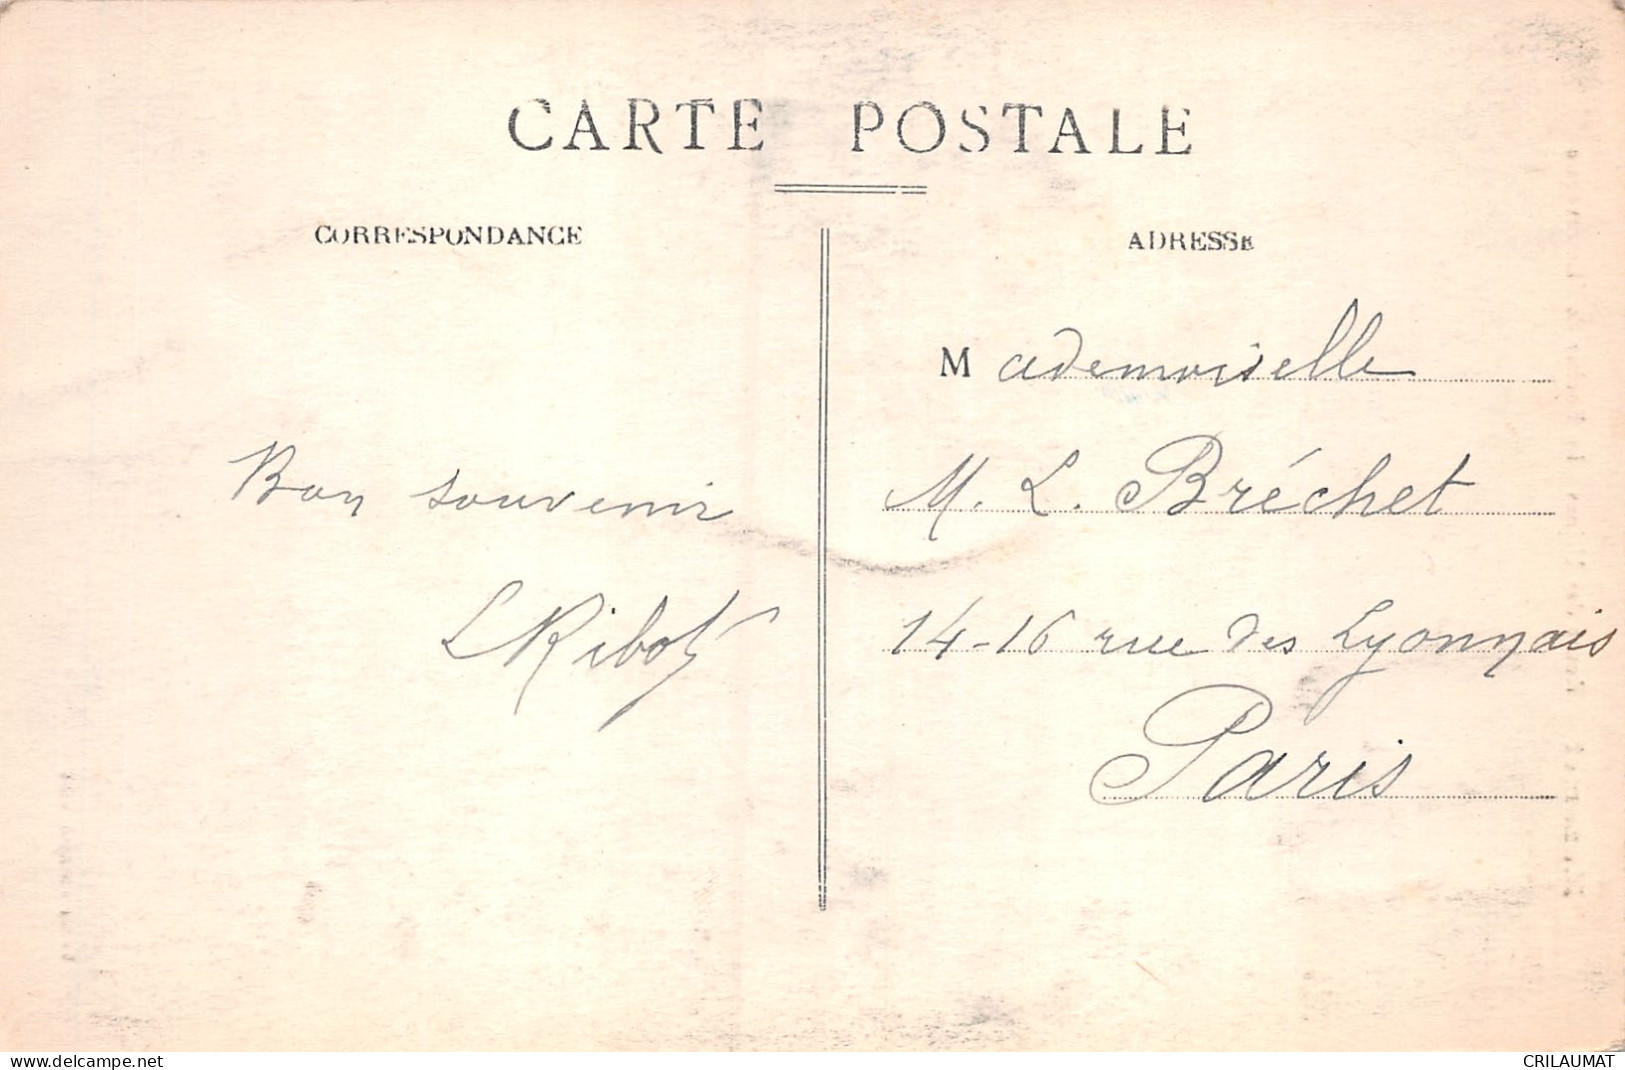 CARTE POSTALE
CORRESPONDANCE
ADRESSE
Bon souvenir
L Ribot
Mademoiselle
M. L. Bréchet
14-16 rue des Lyonnais
Paris
www.delcampe.net
CRILAUMAT